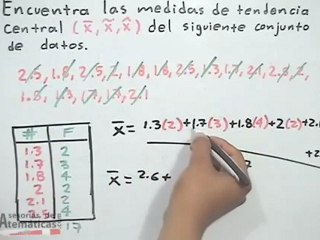 Encuentra las medidas de tendencia
Central (x̄, x̃, x̂) del siguiente conjunto
de datos.
2.5, 1.8, 2.5, 2, 1.8, 2.5, 1.3, 1.7, 2.1, 2.5, 2,
1.8, 1.3, 1.7, 1.7, 2.1
# F
1.3 2
1.7 3
1.8 4
2 2
2.1 2
2.5 4
17
x̄ = 1.3(2)+1.7(3)+1.8(4)+2(2)+2.
+2
x̄ = 2.6+
Asesorías de
Matemáticas